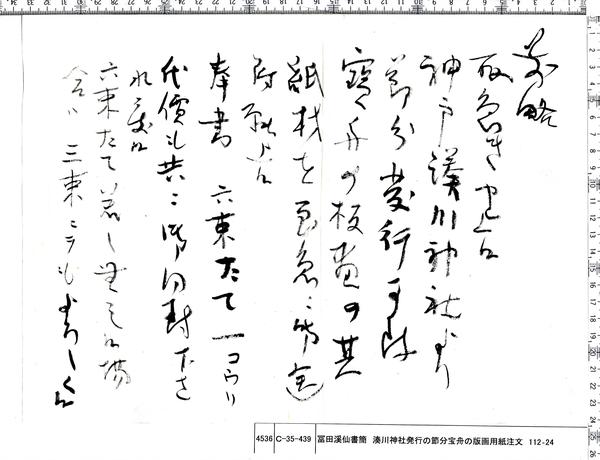 前略
取急ぎ申上候
神戸湊川神社より
節分発行可致
寳舟の板畫の其
紙材を至急ニ御送
附願上候
奉書 六束たて 一コウリ
代價も共ニ御同封下さ
れ度候
六束たて若し無之場
合ハ 三束ニテもよろしく候
4536 C-35-439 冨田溪仙書簡 湊川神社発行の節分宝舟の版画用紙注文 112-24